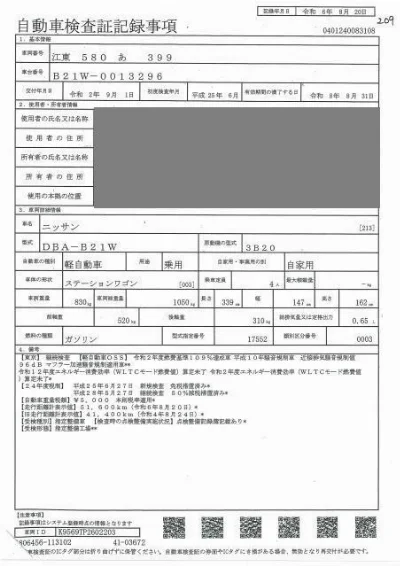 記録年月日 令和 6年 8月 20日
209
自動車検査証記録事項
0401240083108
1．基本情報
車両番号 江東 580 あ 399
車台番号 B21W-0013296
交付年月日 令和 2年 9月 1日 初度検査年月 平成 25年 6月 有効期間の満了する日 令和 8年 8月 31日
2．使用者・所有者情報
使用者の氏名又は名称
使用者の住所
所有者の氏名又は名称
所有者の住所
使用の本拠の位置
3．車両詳細情報
車名 ニッサン [213]
型式 DBA-B21W 原動機の型式 3B20
自動車の種別 軽自動車 用途 乗用 自家用・事業用の別 自家用
車体の形状 ステーションワゴン [003] 乗車定員 4人 最大積載量 -kg
車両重量 830kg 車両総重量 1050kg 長さ 339cm 幅 147cm 高さ 162cm
前軸重 520kg 後軸重 310kg 総排気量又は定格出力 0.65 L
燃料の種類 ガソリン 型式指定番号 17552 類別区分番号 0003
4．備考
[東京] 継続検査 [軽自動車OSS] 令和2年度燃費基準109％達成車 平成10年騒音規制車 近接排気騒音規制値
96dB マフラー加速騒音規制適用車*
令和12年度エネルギー消費効率（WLTCモード燃費値）算定未了 令和2年度エネルギー消費効率（WLTCモード燃費値
）算定未了*
[24年度税制] 平成25年6月27日 新規検査 免税措置済み*
平成28年5月27日 継続検査 50％減税措置済み*
[自動車重量税額] ￥5,000 本則税率適用*
[走行距離計表示値] 51,600km（令和6年8月20日）
[旧走行距離計表示値] 41,400km（令和4年8月24日）*
[受検種別] 指定整備車 [検査時の点検整備実施状況] 点検整備記録簿記載あり*
[受検形態] 指定整備工場*
[注意事項]
記録事項はシステム登録時点の情報となります
車両ID K9569TP2602203
806456-113102 41-03672